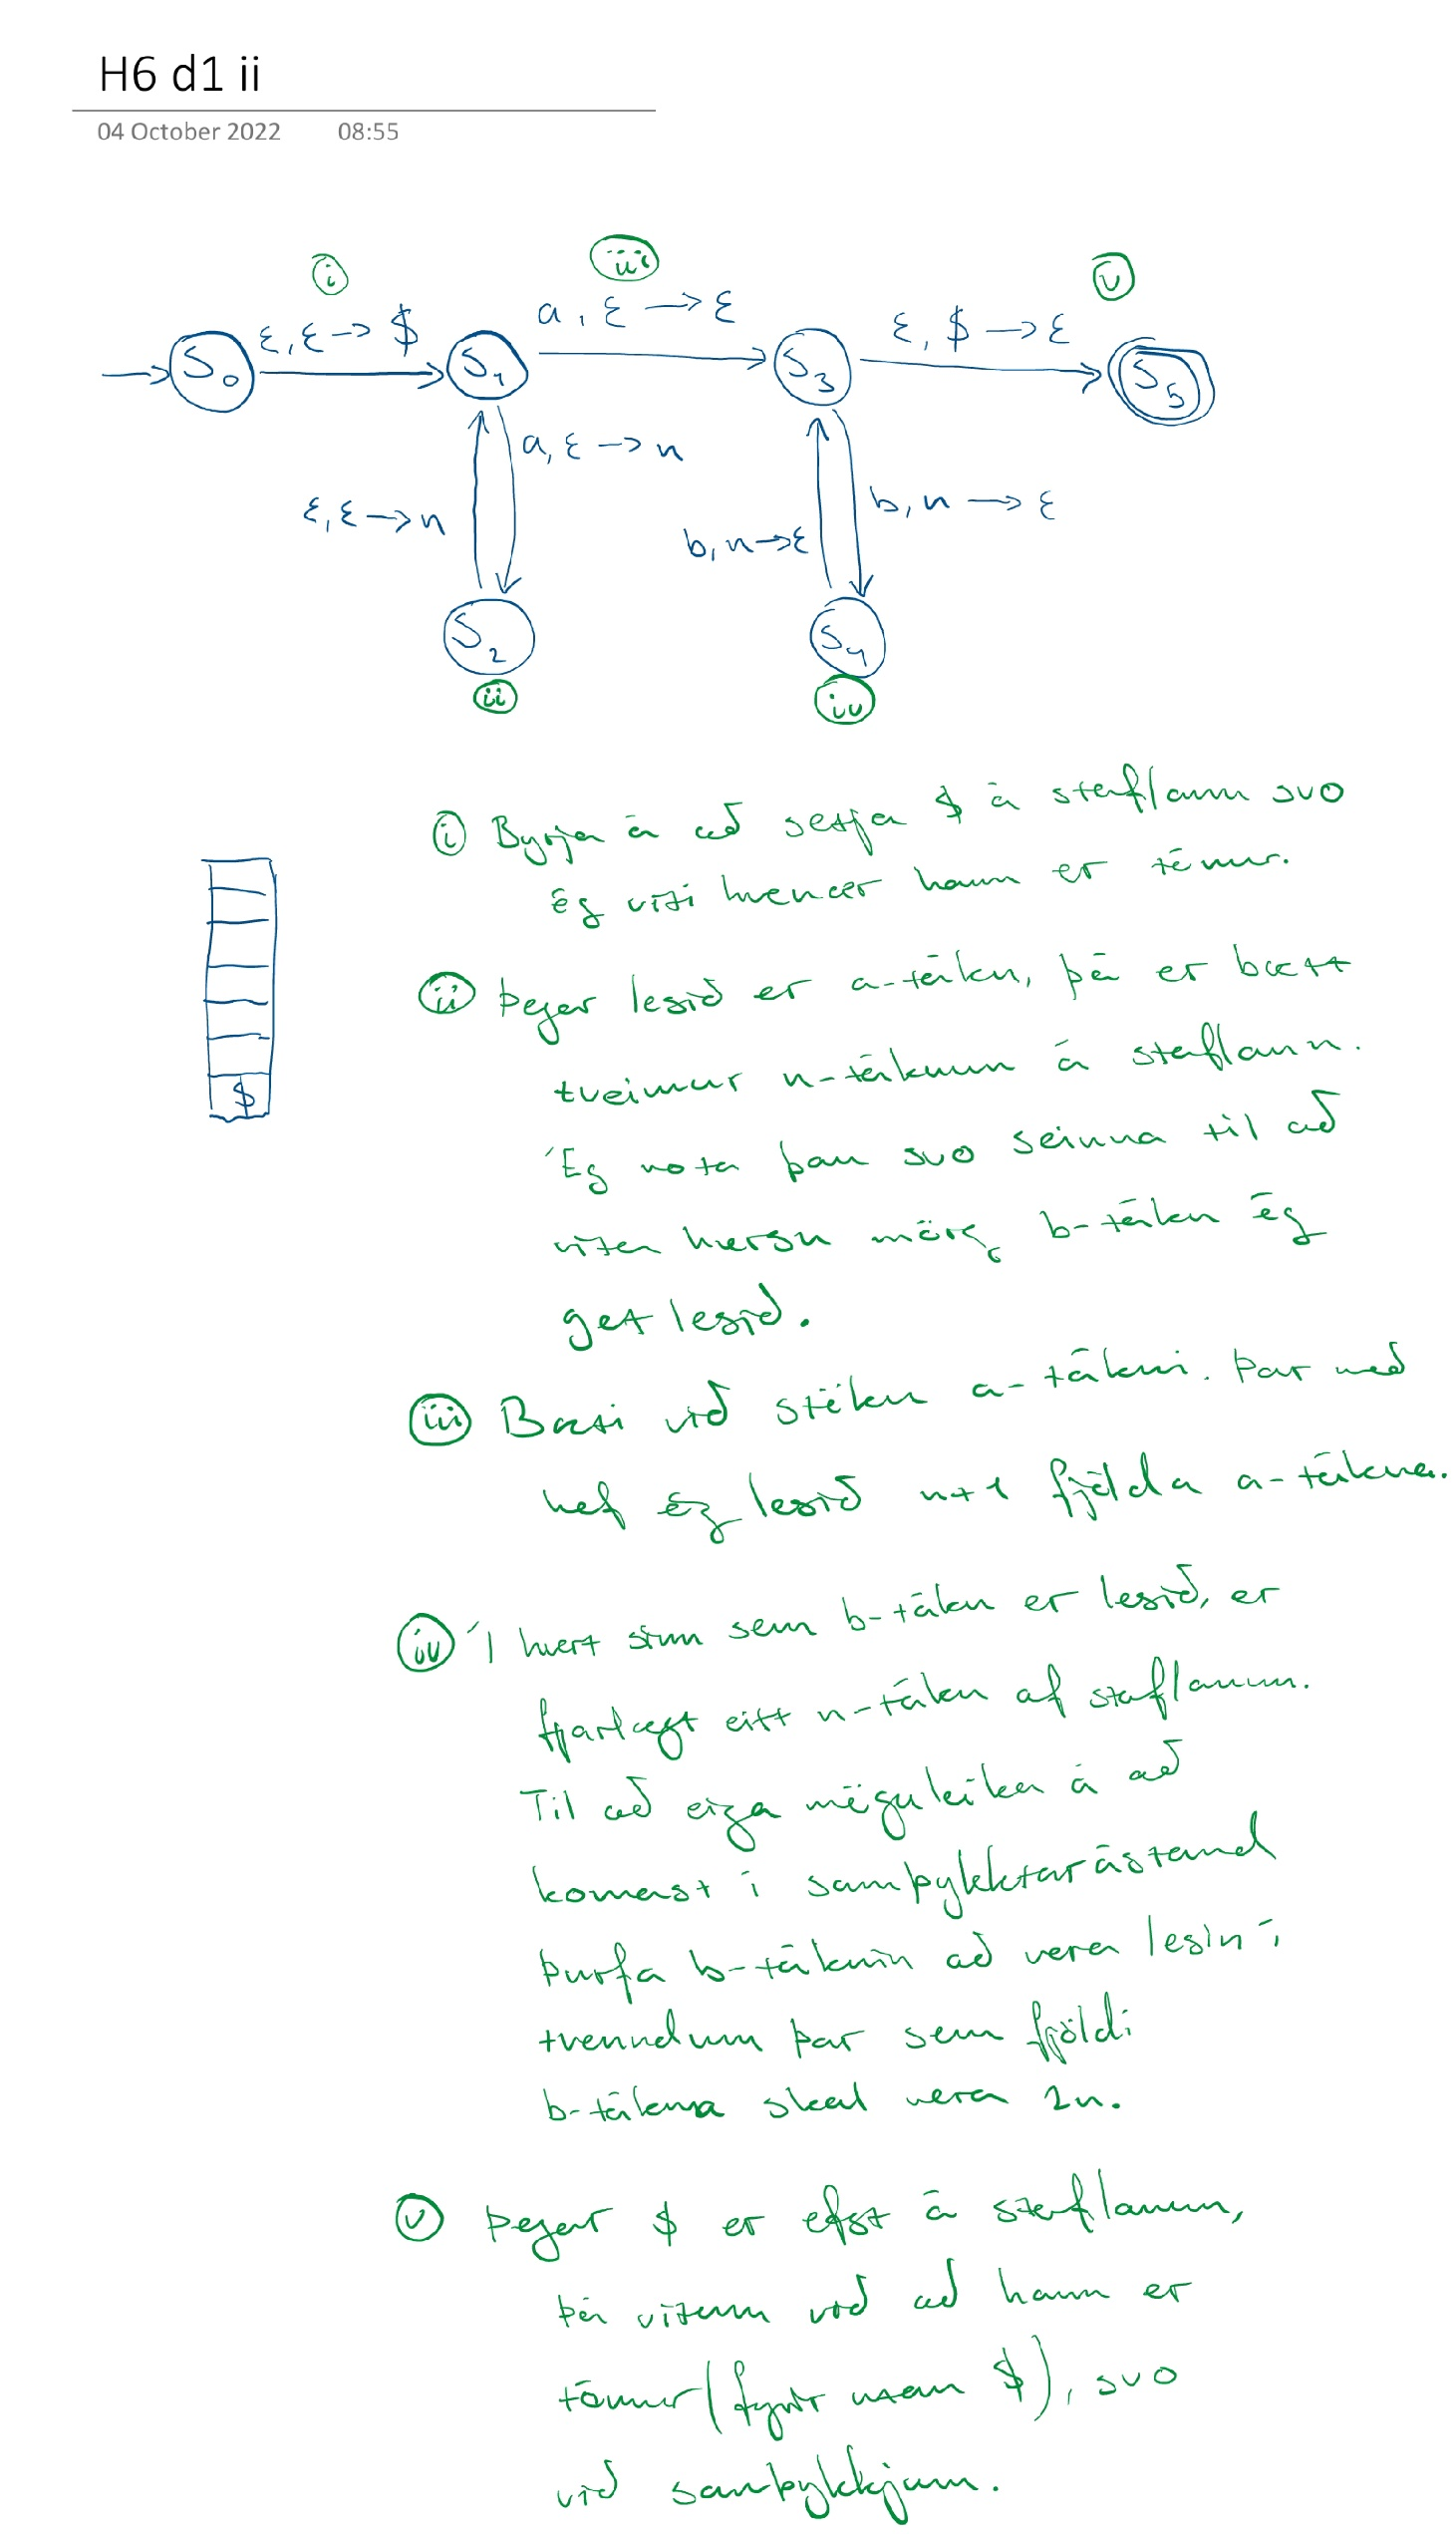 H6 d1 ii
04 October 2022 08:55
i iii v
ε,ε→$ a,ε→ε ε,$→ε
S0 S1 S3 S5
a,ε→n
ε,ε→n b,n→ε
b,n→ε
S2 S4
ii iv
i Byrja á að setja $ á staflann svo
ég viti hvenær hann er tómur.
ii Þegar lesið er a-tákn, þá er bætt
tveimur n-táknum á staflann.
Ég nota þau svo seinna til að
vita hversu mörg b-tákn ég
get lesið.
iii Bæti við stöku a-tákni. Þar með
hef ég lesið n+1 fjölda a-tákna.
iv Í hvert sinn sem b-tákn er lesið, er
fjarlægt eitt n-tákn af staflanum.
Til að eiga möguleika á að
komast í samþykktarástand
þurfa b-táknin að vera lesin í
tvenndum þar sem fjöldi
b-tákna skal vera 2n.
v Þegar $ er efst á staflanum,
þá vitum við að hann er
tómur (fyrir utan $), svo
við samþykkjum.
$